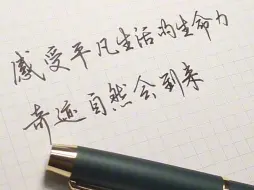 感受平凡生活的生命力
奇迹自然会到来